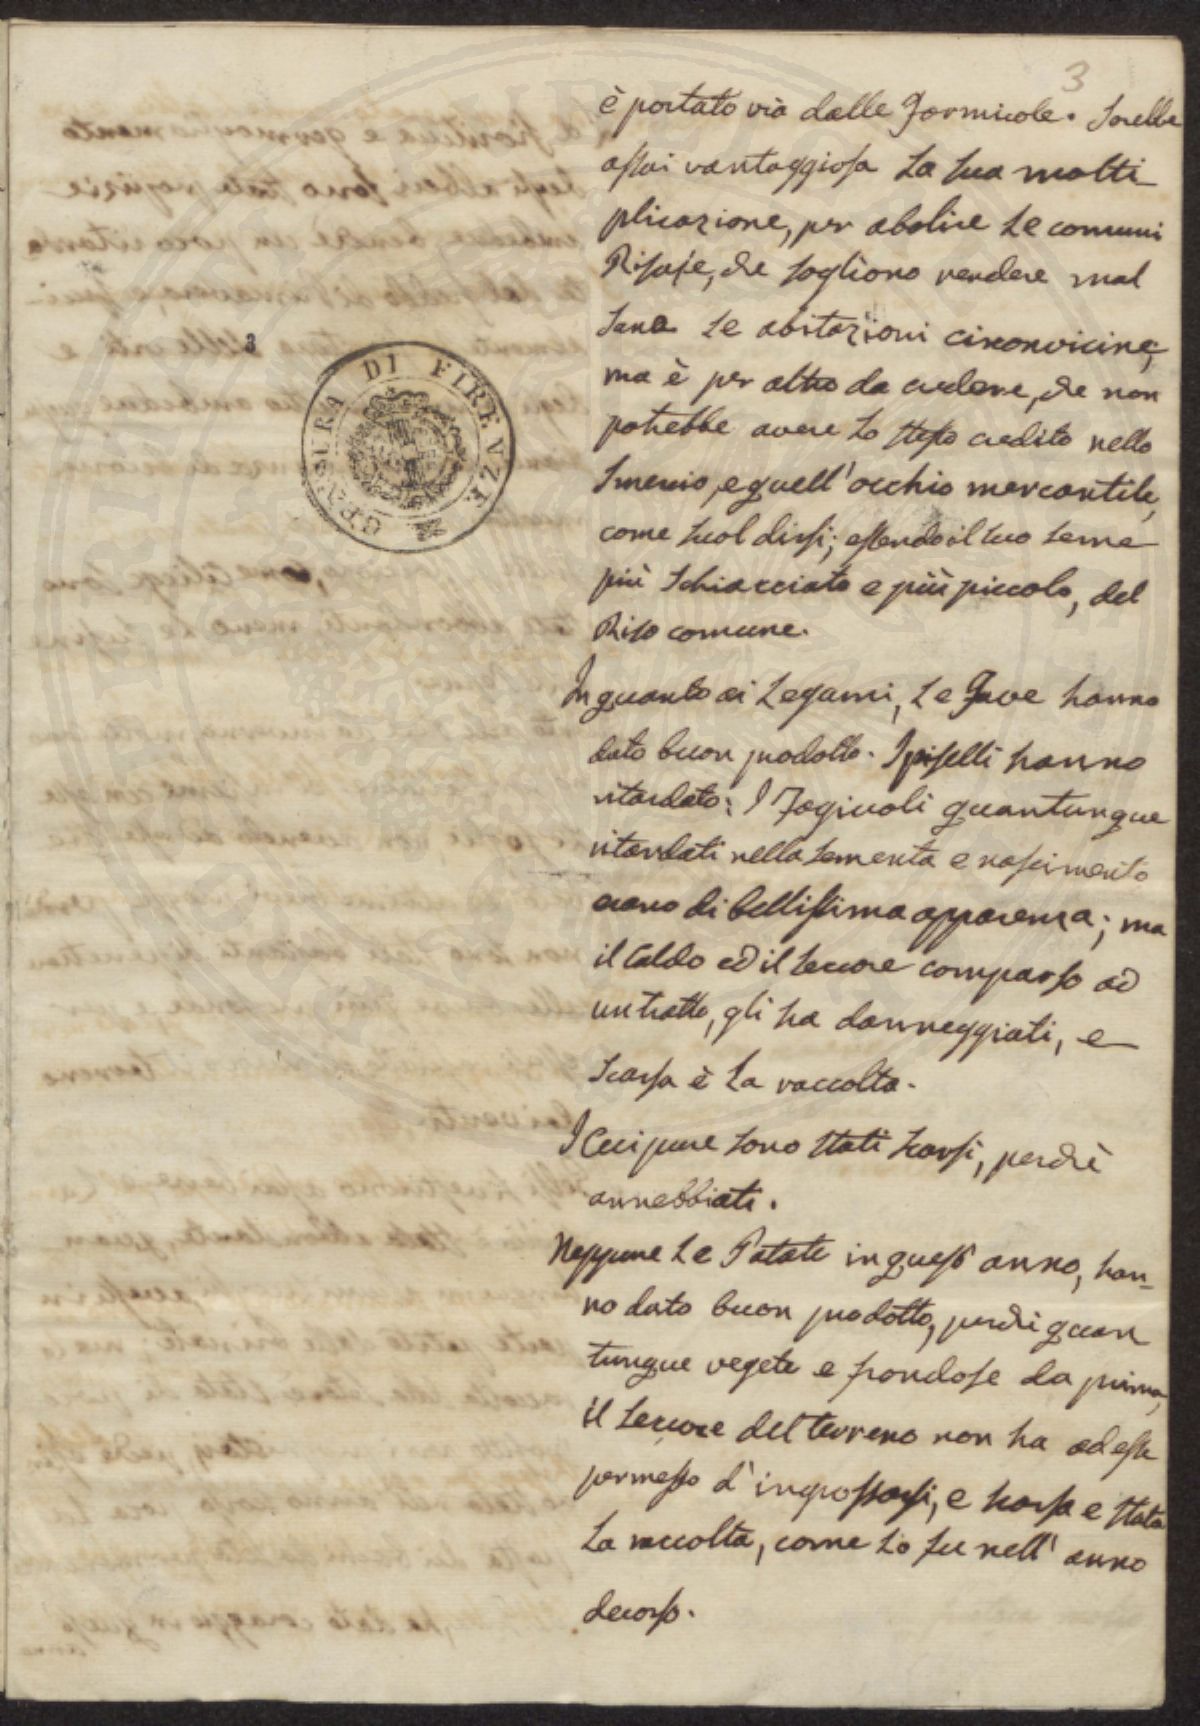 3
è portato via dalle Formicole. Sarebbe
assai vantaggiosa la sua molti-
plicazione, per abolire le comuni
Risaje, che sogliono rendere mal
sane le abitazioni circonvicine,
ma è per altro da credere, che non
potrebbe avere lo stesso credito nello
Smercio, e quell'occhio mercantile,
come suol dirsi; essendo il suo seme
più schiacciato e più piccolo, del
Riso comune.
In quanto ai Legumi, le Fave hanno
dato buon prodotto. I piselli hanno
ritardato; I Fagiuoli quantunque
ritardati nella sementa e nascimento
erano di bellissima apparenza; ma
il Caldo ed il seccore comparso ad
un tratto, gli ha danneggiati, e
scarsa è la raccolta.
I Ceci pure sono stati scarsi, perchè
annebbiati.
Neppure le Patate in quest' anno, han-
no dato buon prodotto, perchè quan
tunque vegete e frondose da prima,
il seccore del terreno non ha ad esse
permesso d'ingrossarsi, e scarsa e stata
la raccolta, come lo fu nell' anno
decorso.
3
CENSURA DI FIRENZE